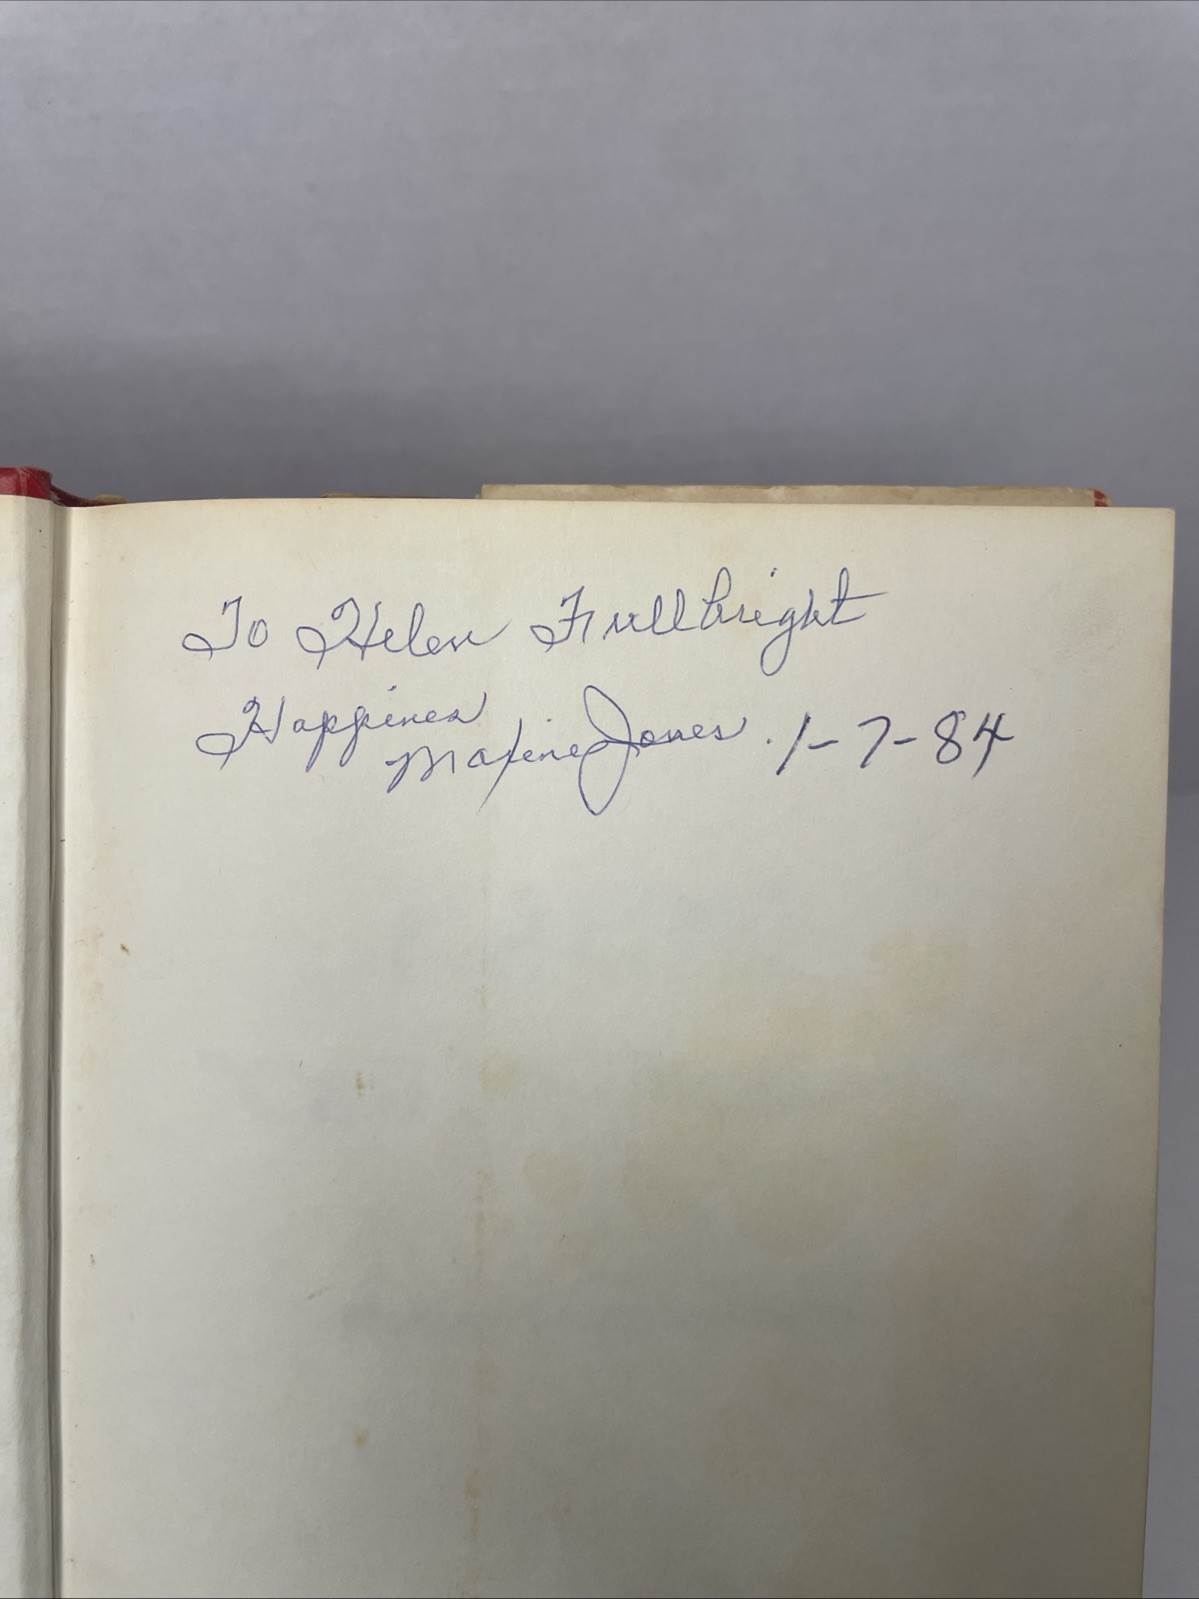 To Helen Fullbright
Happiness
Maxine Jones 1-7-84